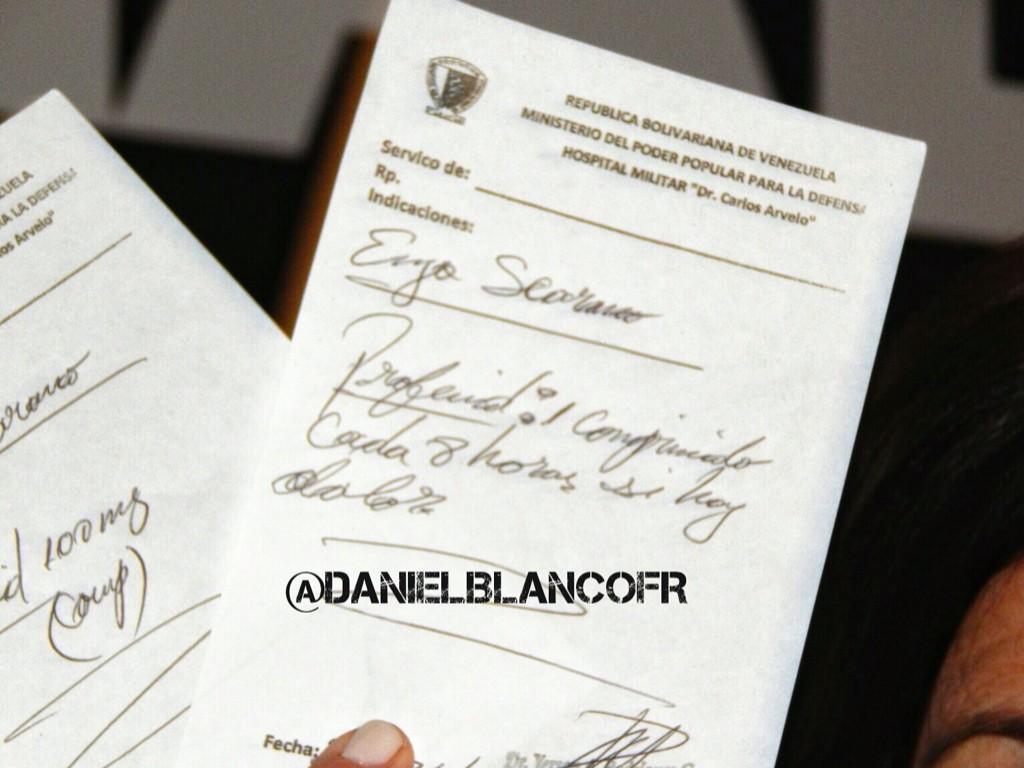 ZUELA
A LA DEFENSA
os Arvelo"
id 100 mg
(comp)
REPUBLICA BOLIVARIANA DE VENEZUELA
MINISTERIO DEL PODER POPULAR PARA LA DEFENSA
HOSPITAL MILITAR "Dr. Carlos Arvelo"
Servico de:
Rp.
Indicaciones:
Enzo Scarano
Profenid: 1 Comprimido
Cada 8 horas si hay
dolor
@DANIELBLANCOFR
Fecha:
Dr.